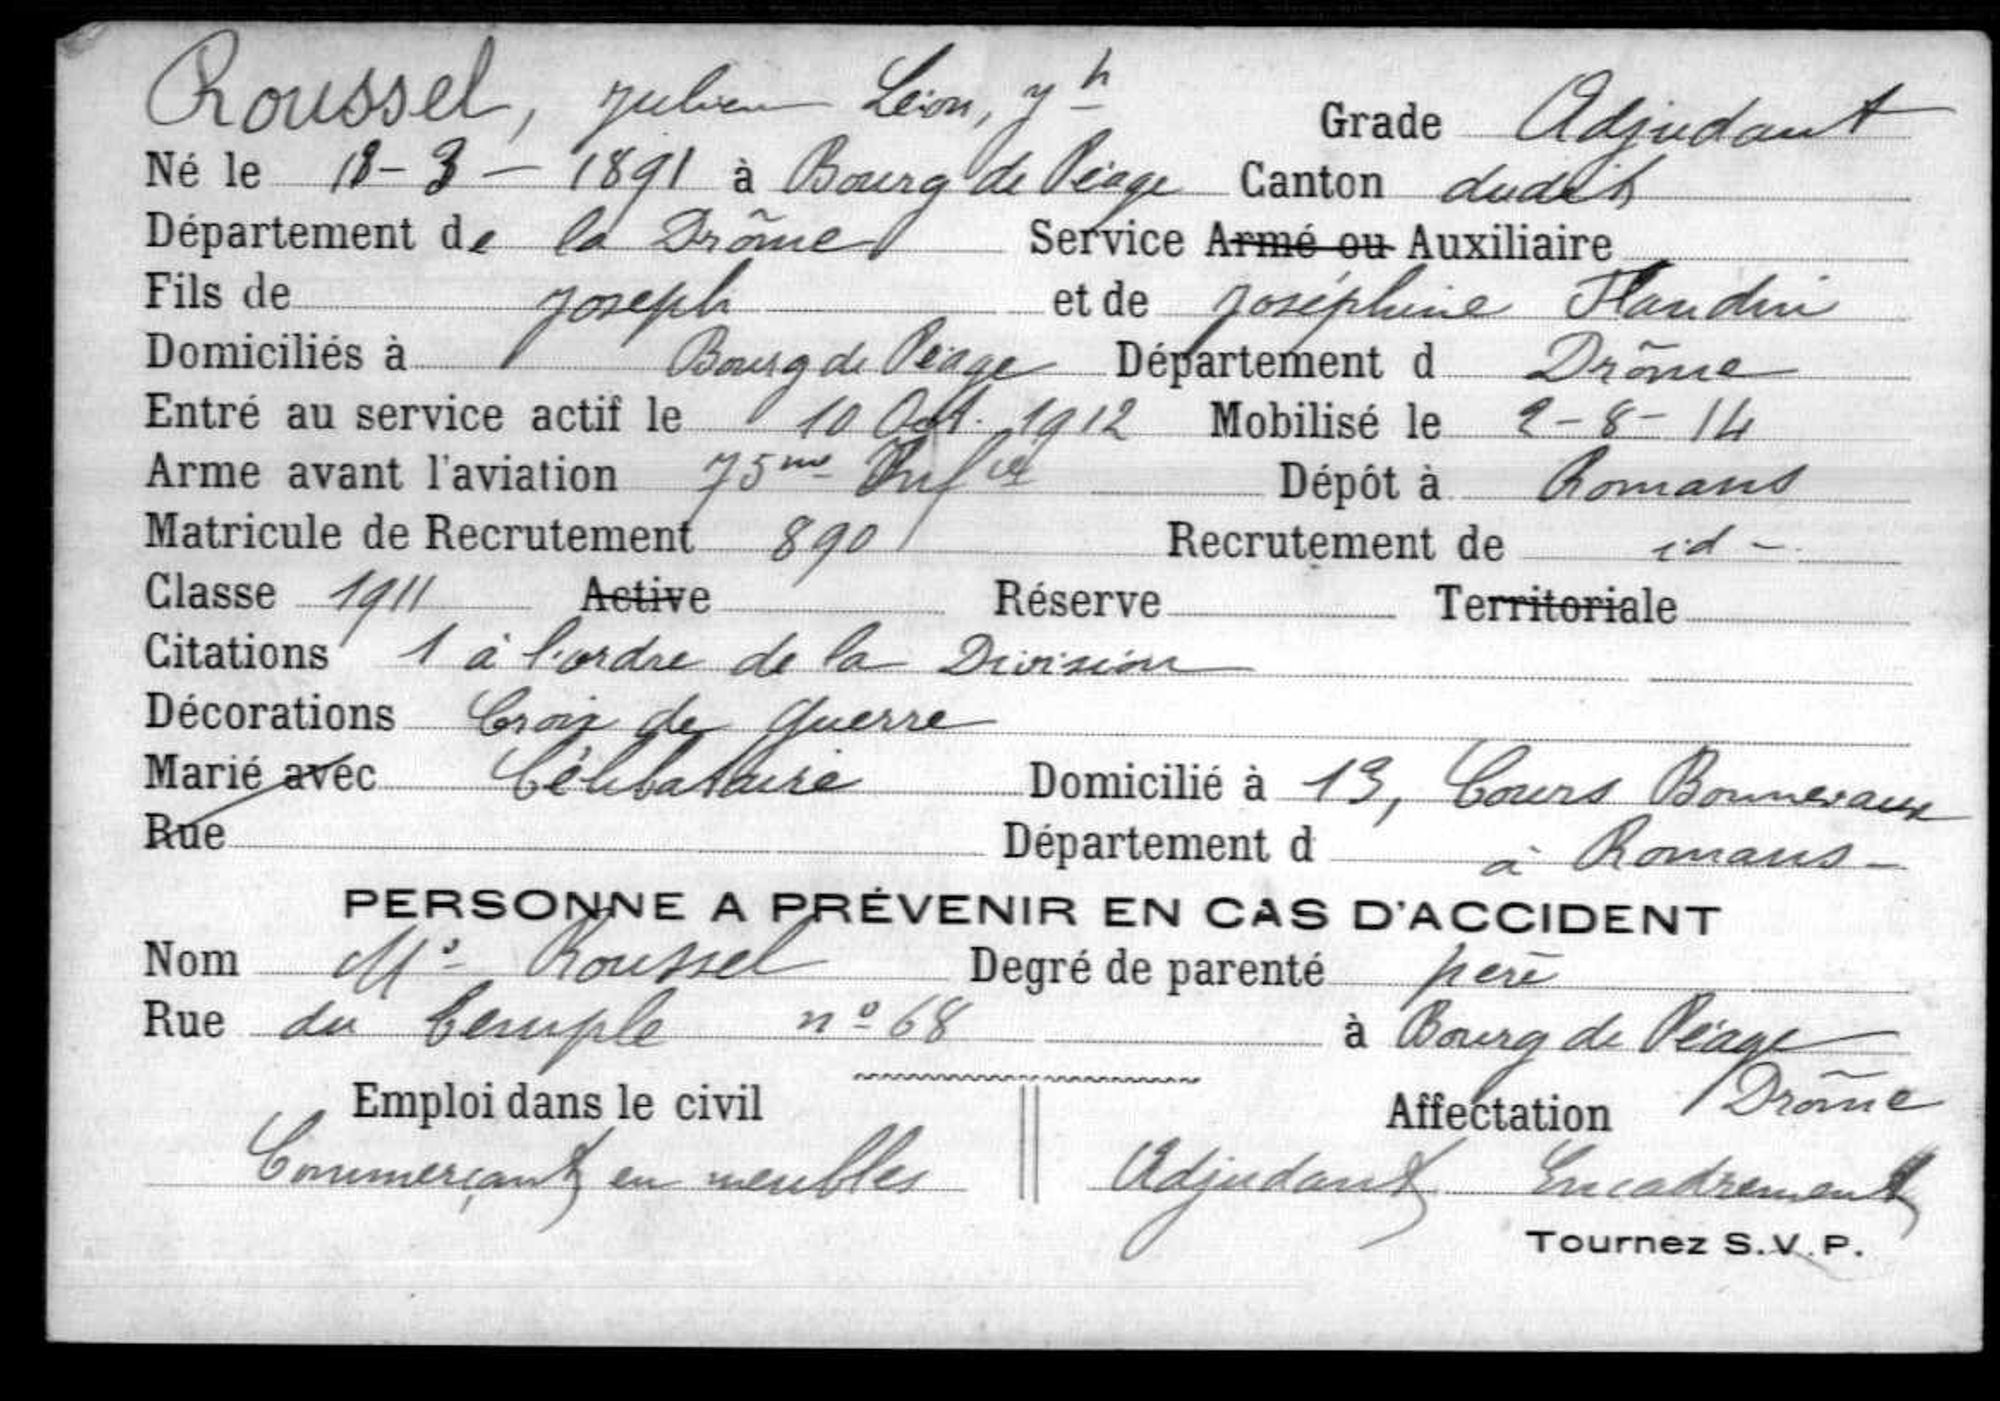 Roussel, Julien Léon, Jh Grade Adjudant
Né le 18-3-1891 à Bourg de Péage Canton dudit
Département de la Drôme Service Armé ou Auxiliaire
Fils de Joseph et de Joséphine Flandin
Domiciliés à Bourg de Péage Département d Drôme
Entré au service actif le 10 Oct. 1912 Mobilisé le 2-8-14
Arme avant l'aviation 75me Infie Dépôt à Romans
Matricule de Recrutement 890 Recrutement de id -
Classe 1911 Active Réserve Territoriale
Citations 1 à l'ordre de la Division
Décorations Croix de Guerre
Marié avec Célibataire Domicilié à 13, Cours Bonnevaux
Rue Département d à Romans -
PERSONNE A PRÉVENIR EN CAS D'ACCIDENT
Nom Mr Roussel Degré de parenté père
Rue du Temple no 68 à Bourg de Péage
Emploi dans le civil Affectation Drôme
Commerçant en meubles Adjudant Encadrement
Tournez S.V.P.